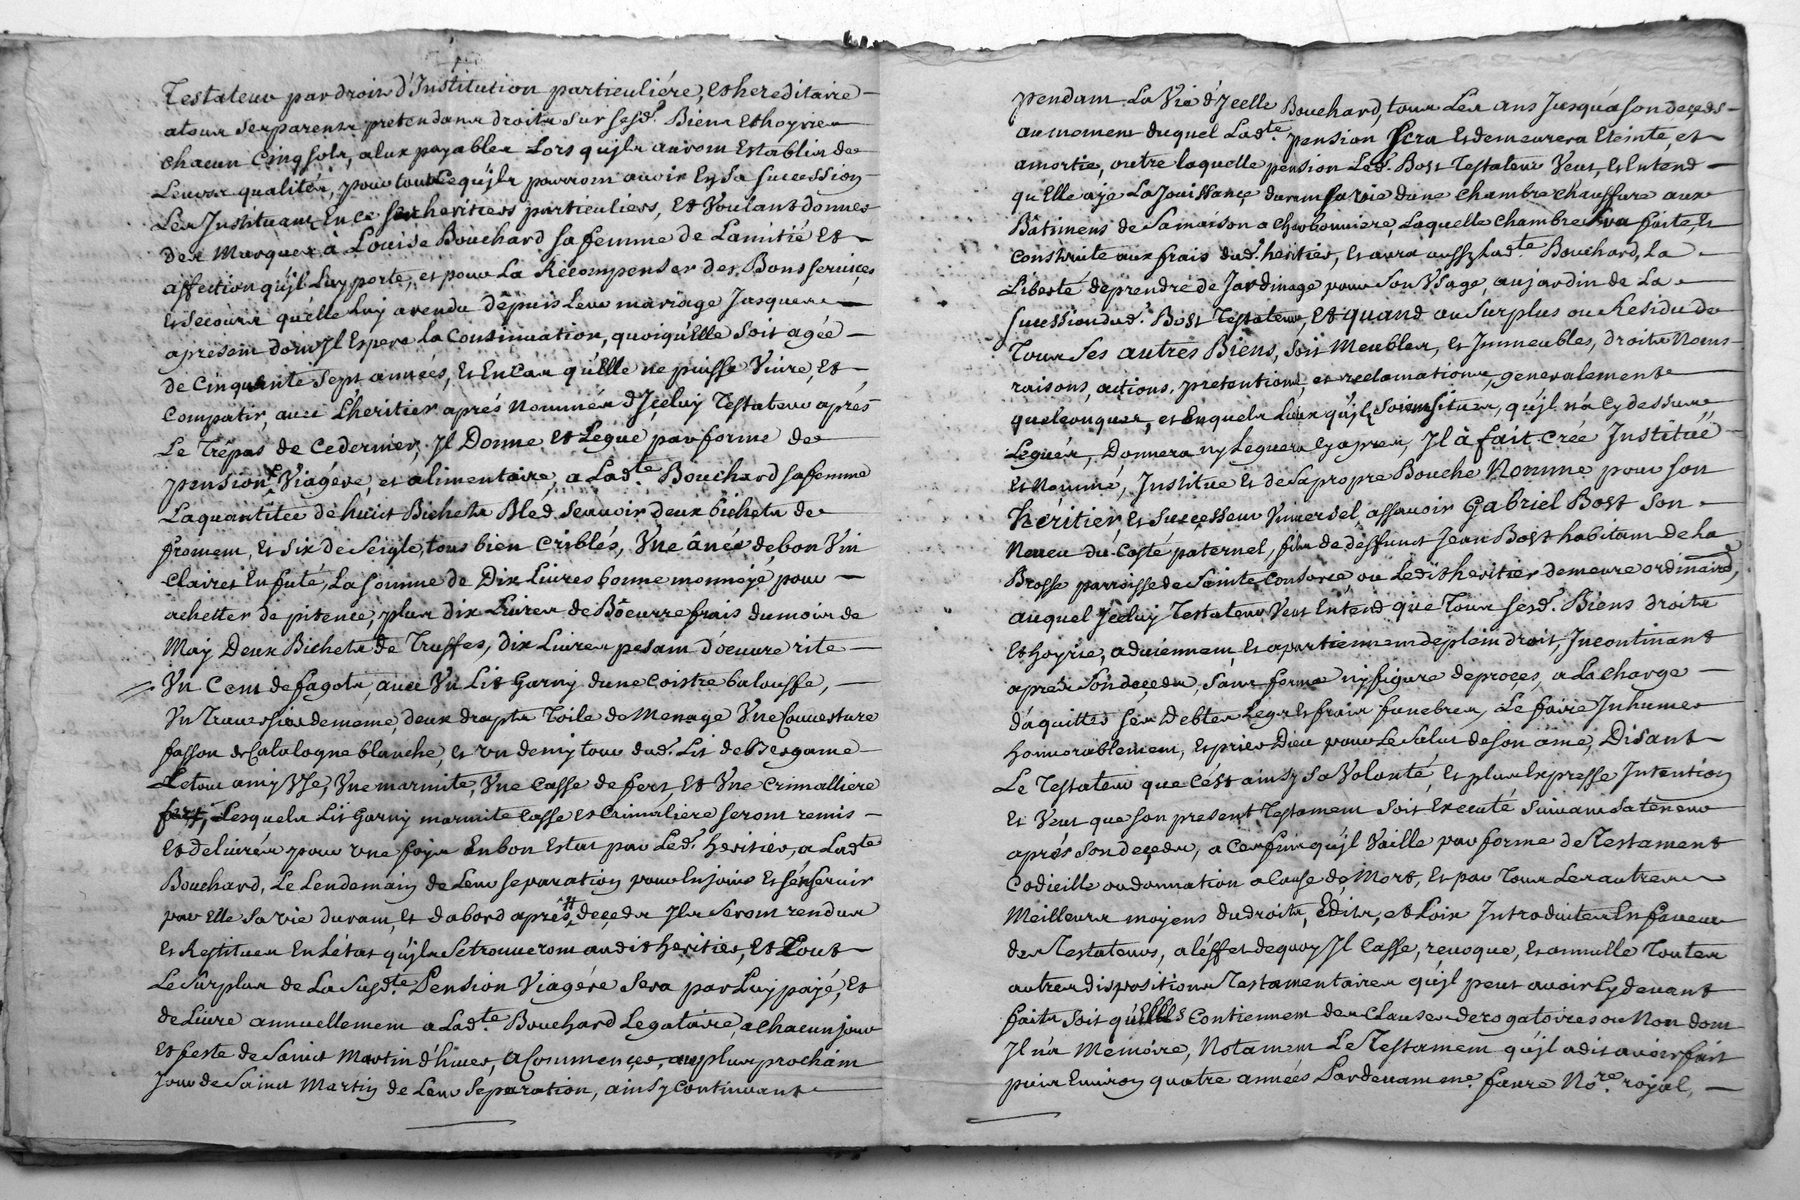 Testateur par droit d'Institution particuliére, et hereditaire
a tous ses parents pretendans droits sur sesd. Biens et hoyrie
chacun Cinq sols, a eux payables Lors qu'jls auront Establis de
Leurs qualités, pour tout ce qu'jls pourront avoir En sa succession
Les Instituant En ce ses heritiers particuliers, Et Voulant donner
des Marques a Louise Bouchard sa femme de Lamitié Et
affection qu'jl Luy porte, et pour La Recompenser des Bons services
et secours qu'elle Luy a rendu depuis Leur mariage Jusques
apresent dont Jl Espere la Continuation, quoiqu'Elle soit agée
de Cinquante sept années, Et En Cas qu'Elle ne puisse Vivre, Et
Compatir, avec L'heritier aprés Nommés d'Jceluy Testateur aprés
Le Trépas de ce dernier, Jl Donne Et Legue par forme de
pension Viagére, et alimentaire, a Lad.te Bouchard sa femme
La quantitée de huict Bichets Bled scavoir deux bichets de
froment, Et six de Seigle, tous bien Criblés, Vne ânée de bon Vin
Clairet En futé, La somme de Dix Livres bonne monnoye pour
achetter de pitence, plus dix Livres de Bœurre frais du mois de
May Deux Bichets de Truffes, dix Livres pesant d'oeuvre rite
Vn Cent de fagots, avec Vn Lit Garny dune Coistre balouffe,
Vn Traversier de meme, deux draps Toile de Menage Vne Couverture
fasson de Catalogne blanche, et vn demy tour dud. Lit de Bergame
Le tout amy Vsé, Vne marmite, Vne Casse de fert, Et Vne Crimalliere
Lesquels Lit Garny marmite Casse et Crimaliere seront remis
Et delivrés pour vne fois En bon Estat par Led. heritier, a Lad.te
Bouchard, Le Lendemain de Leur separation pour En joüir Et s'en servir
par Elle Sa vie durant, et d'abord aprés decéds Jls seront rendus
et Restitués En L'état qu'jls se trouveront audit heritier, Et Tout
Le surplus de La susd.te Pension Viagére sera par Luy payé, Et
de Livré annuellement a Lad.te Bouchard Legataire, a chacun jour
Et feste de Saint Martin d'hiver, a Commencer, au plus prochain
Jour de Saint Martin de Leur separation, ainsy Continuant
pendant La Vie d'Jcelle Bouchard, tous Les ans Jusqu'a son deceds
au moment duquel Lad.te pension sera Et demeurera Eteinte, et
amortie, outre laquelle pension Led. Bost Testateur Veut, et Entend
qu'Elle aye La Jouissance durant sa vie dune chambre chauffure aux
Bâtimens de sa maison a Charbonniere, Laquelle chambre sera faite, et
Construite aux frais dud. heritier, Et aura aussy Lad.te Bouchard, La
Liberté de prendre de Jardinage pour Son Vsage, au jardin de La
sucession dud. Bost Testateur, Et quand au Surplus ou Residu de
Tous Ses autres Biens, Soit Meubles, et Jmmeubles, droits Noms
raisons, actions, pretentions, et reclamations, generalement
quelconques, et En quels Lieux qu'jls soient situés, qu'jl n'a Cy dessus
Legués, Donnera ny Leguera Cy aprés, Jl à fait Crée Institué
et Nommé, Institue Et de sa propre Bouche Nomme pour son
héritier et Successeur Vniversel, assavoir Gabriel Bost Son
Neveu du Costé paternel, fils de deffunct Jean Bost habitant de la
Brosse parroisse de Sainte Consorce ou Ledit heritier demeure ordinaire,
auquel Jceluy Testateur Veut Entend que Tous sesd. Biens droits
Et hoyrie, adviennent, Et apartiennent de plein droit, Incontinant
aprés Son deceds, sans forme ny figure de procés, a La charge
d'aquitter ses Debtes Legs et frais funebres, Le faire Inhumer
honnorablement, Et prier Dieu pour Le Salut de son ame, Disant
Le Testateur que C'ést ainsy Sa Volonté, Et plus Expresse Intention
Et Veut que son present Testament Soit Executé Suivant Sa teneur
aprés Son deceds, a Ces fins qu'jl Vaille par forme de Testament
Codicille ou donnation a Cause de Mort, et par Tous Les autres
Meilleurs moyens du droits, Edits, et Loix Introduites En faveur
des Testateurs, a l'éffet de quoy Jl Casse, revoque, Et annulle Toutes
autres dispositions Testamentaires qu'jl peut avoir Cy devant
faits soit qu'Elles Contiennent des Clauses derogatoires ou Non dont
Jl n'a Memoire, Notament Le Testament qu'jl a dit avoir fait
puis Environ quatre années Pardevant me. faure No.re royal,